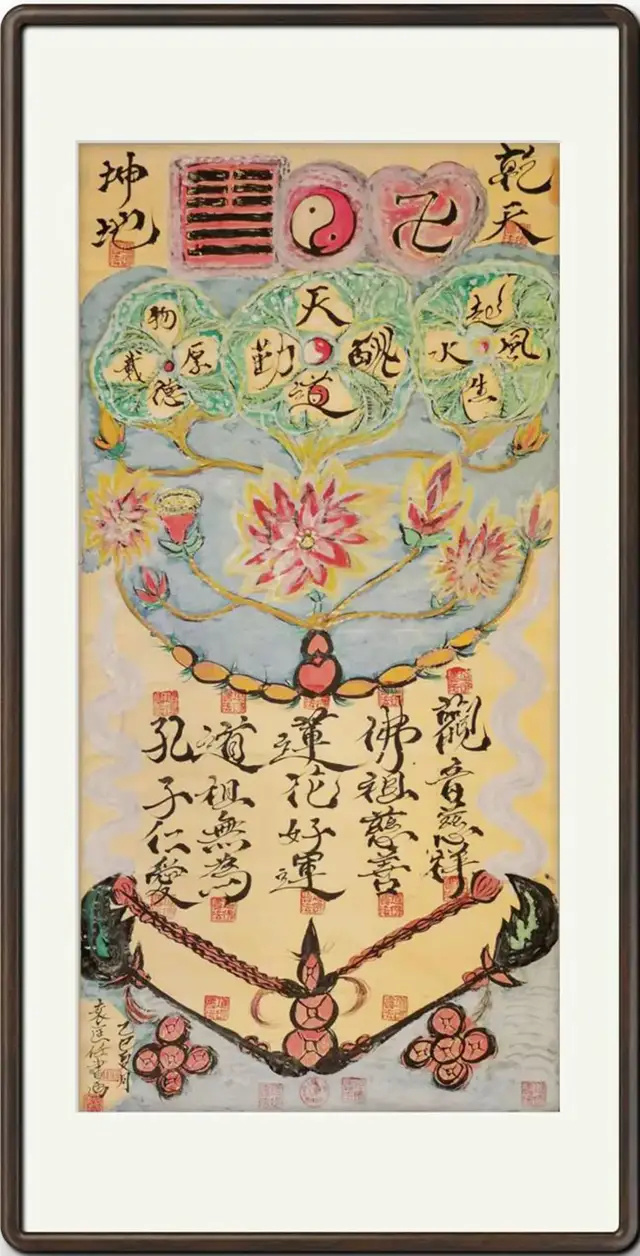 乾天
坤地
風生水起
天道酬勤
厚德載物
觀音慈祥
佛祖慈善
蓮花好運
道祖無為
孔子仁愛
乙巳夏月